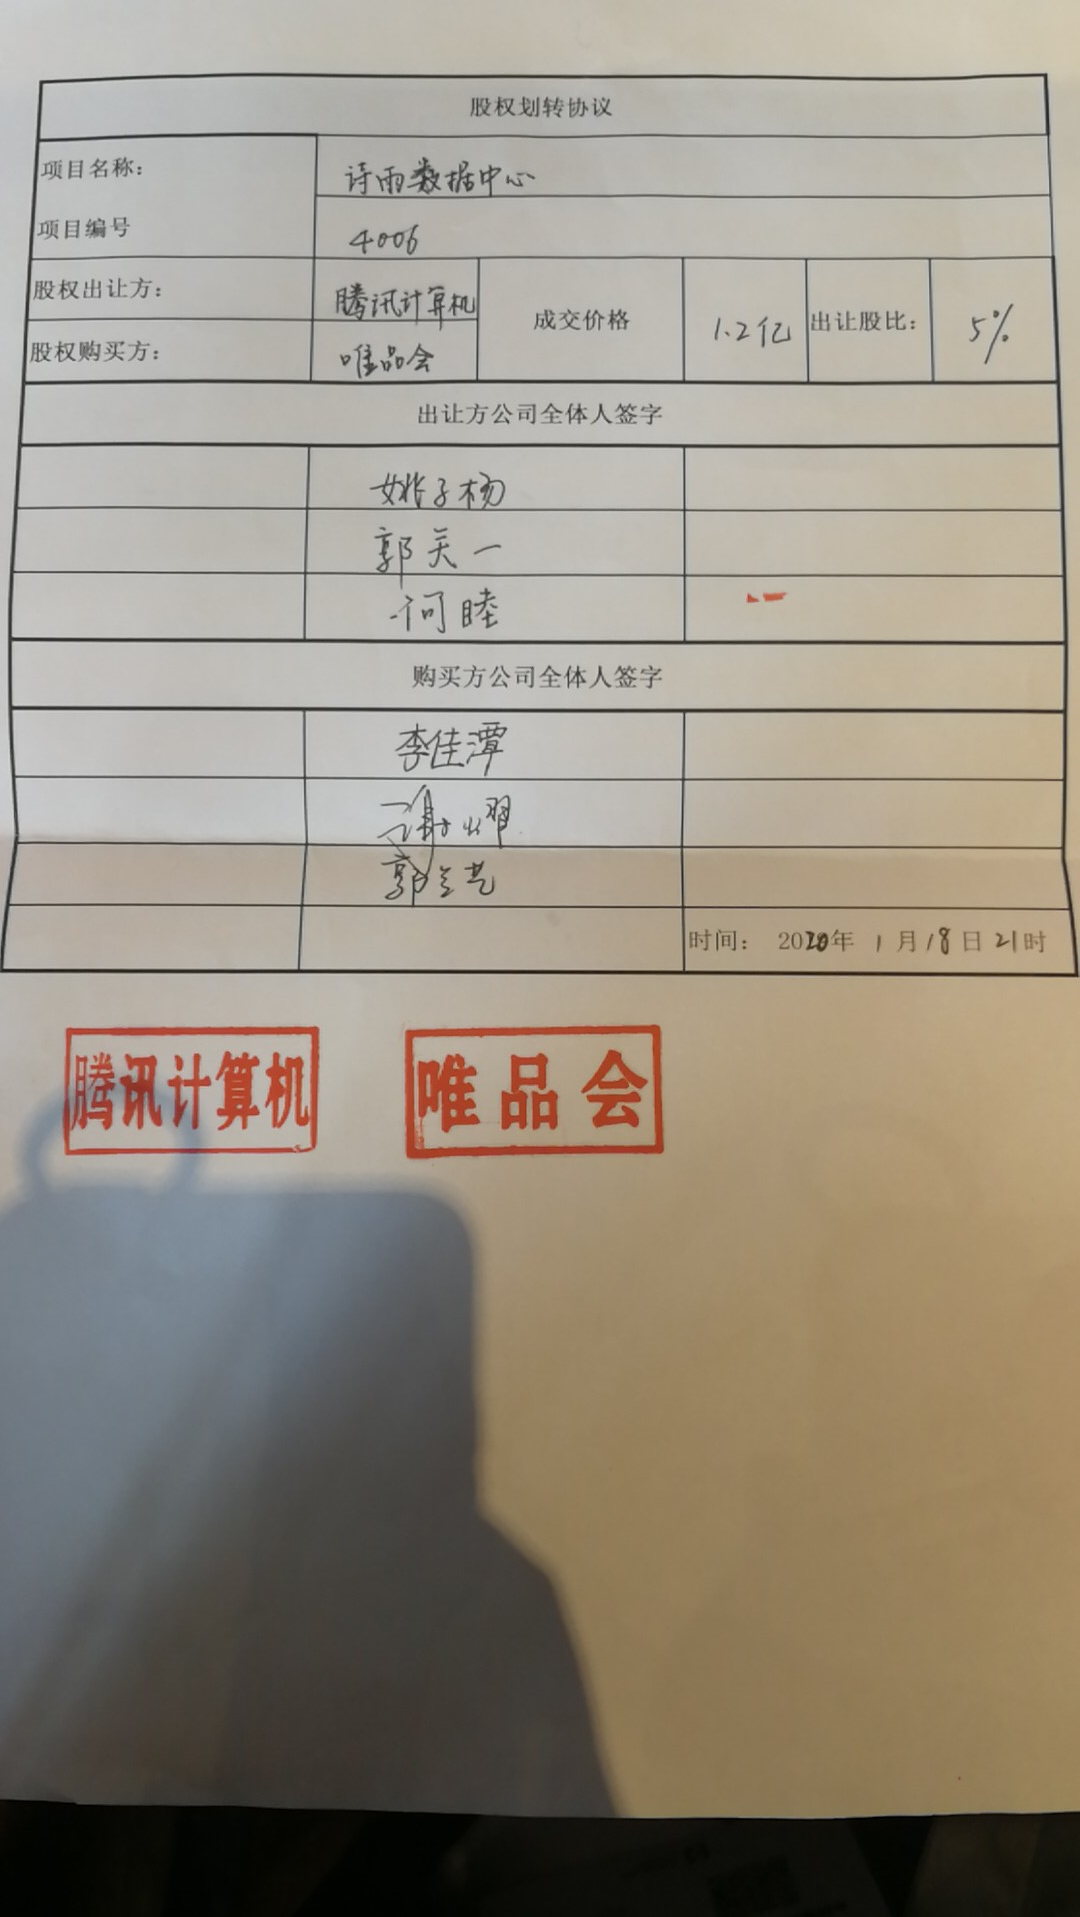 股权划转协议
项目名称: 诗雨数据中心
项目编号 4006
股权出让方: 腾讯计算机 成交价格 1.2亿 出让股比: 5%
股权购买方: 唯品会
出让方公司全体人签字
姚子杨
郭天一
何睦
购买方公司全体人签字
李佳潭
谢耀
郭兰芝
时间: 2020年 1月18日21时
腾讯计算机 唯品会